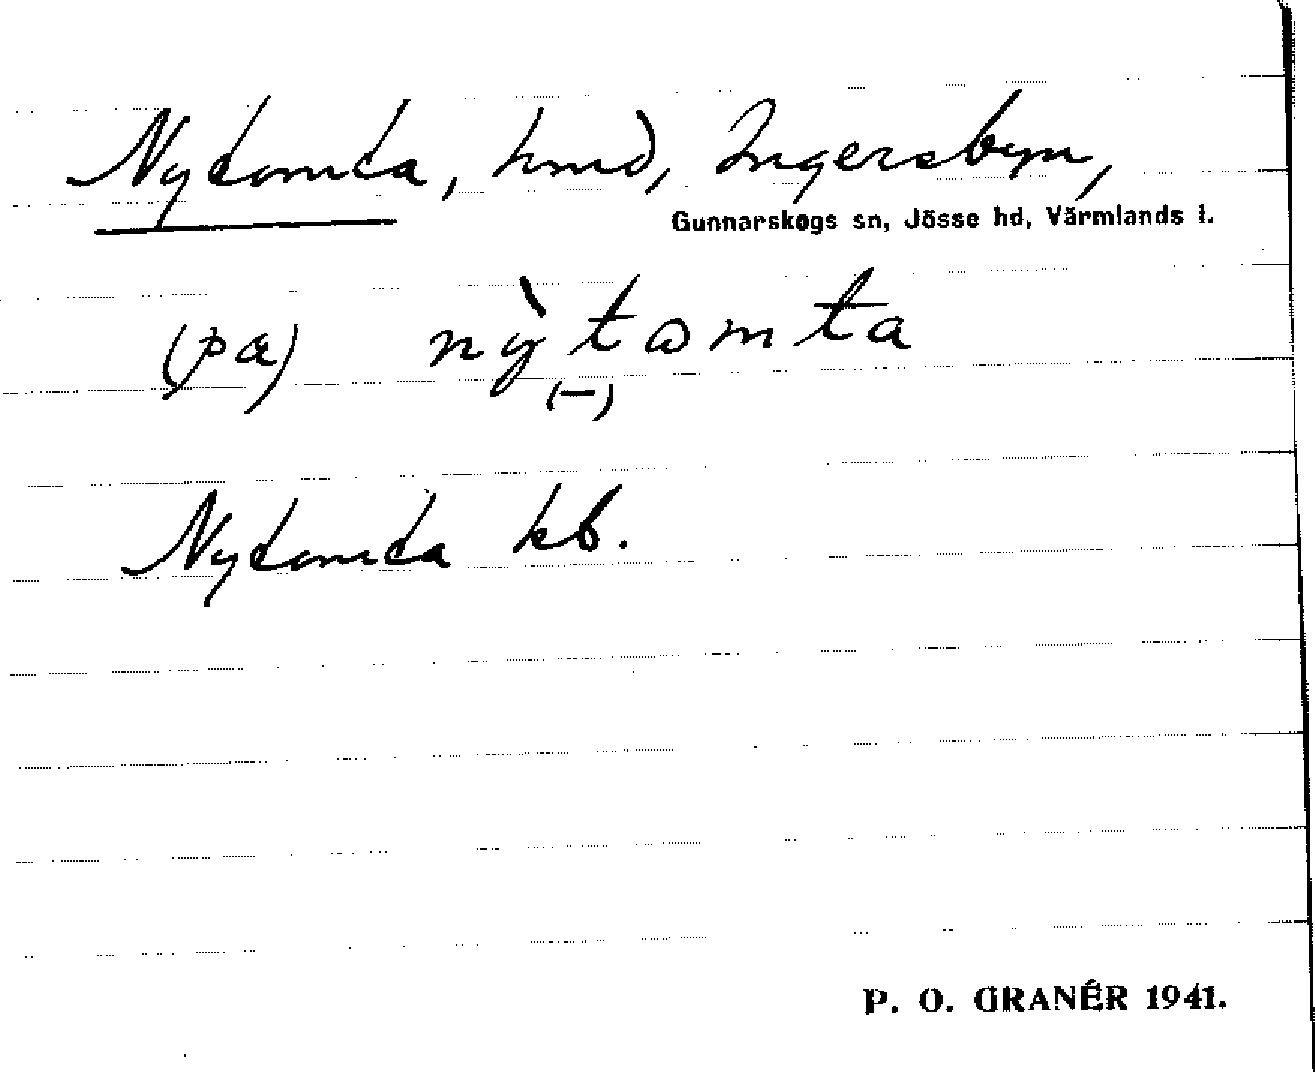 Nytomta, hmd, Ingersbyn,
Gunnarskogs sn, Jösse hd, Värmlands l.
(pa) nỳtomta
(–)
Nytomta kb.
P. O. GRANÉR 1941.